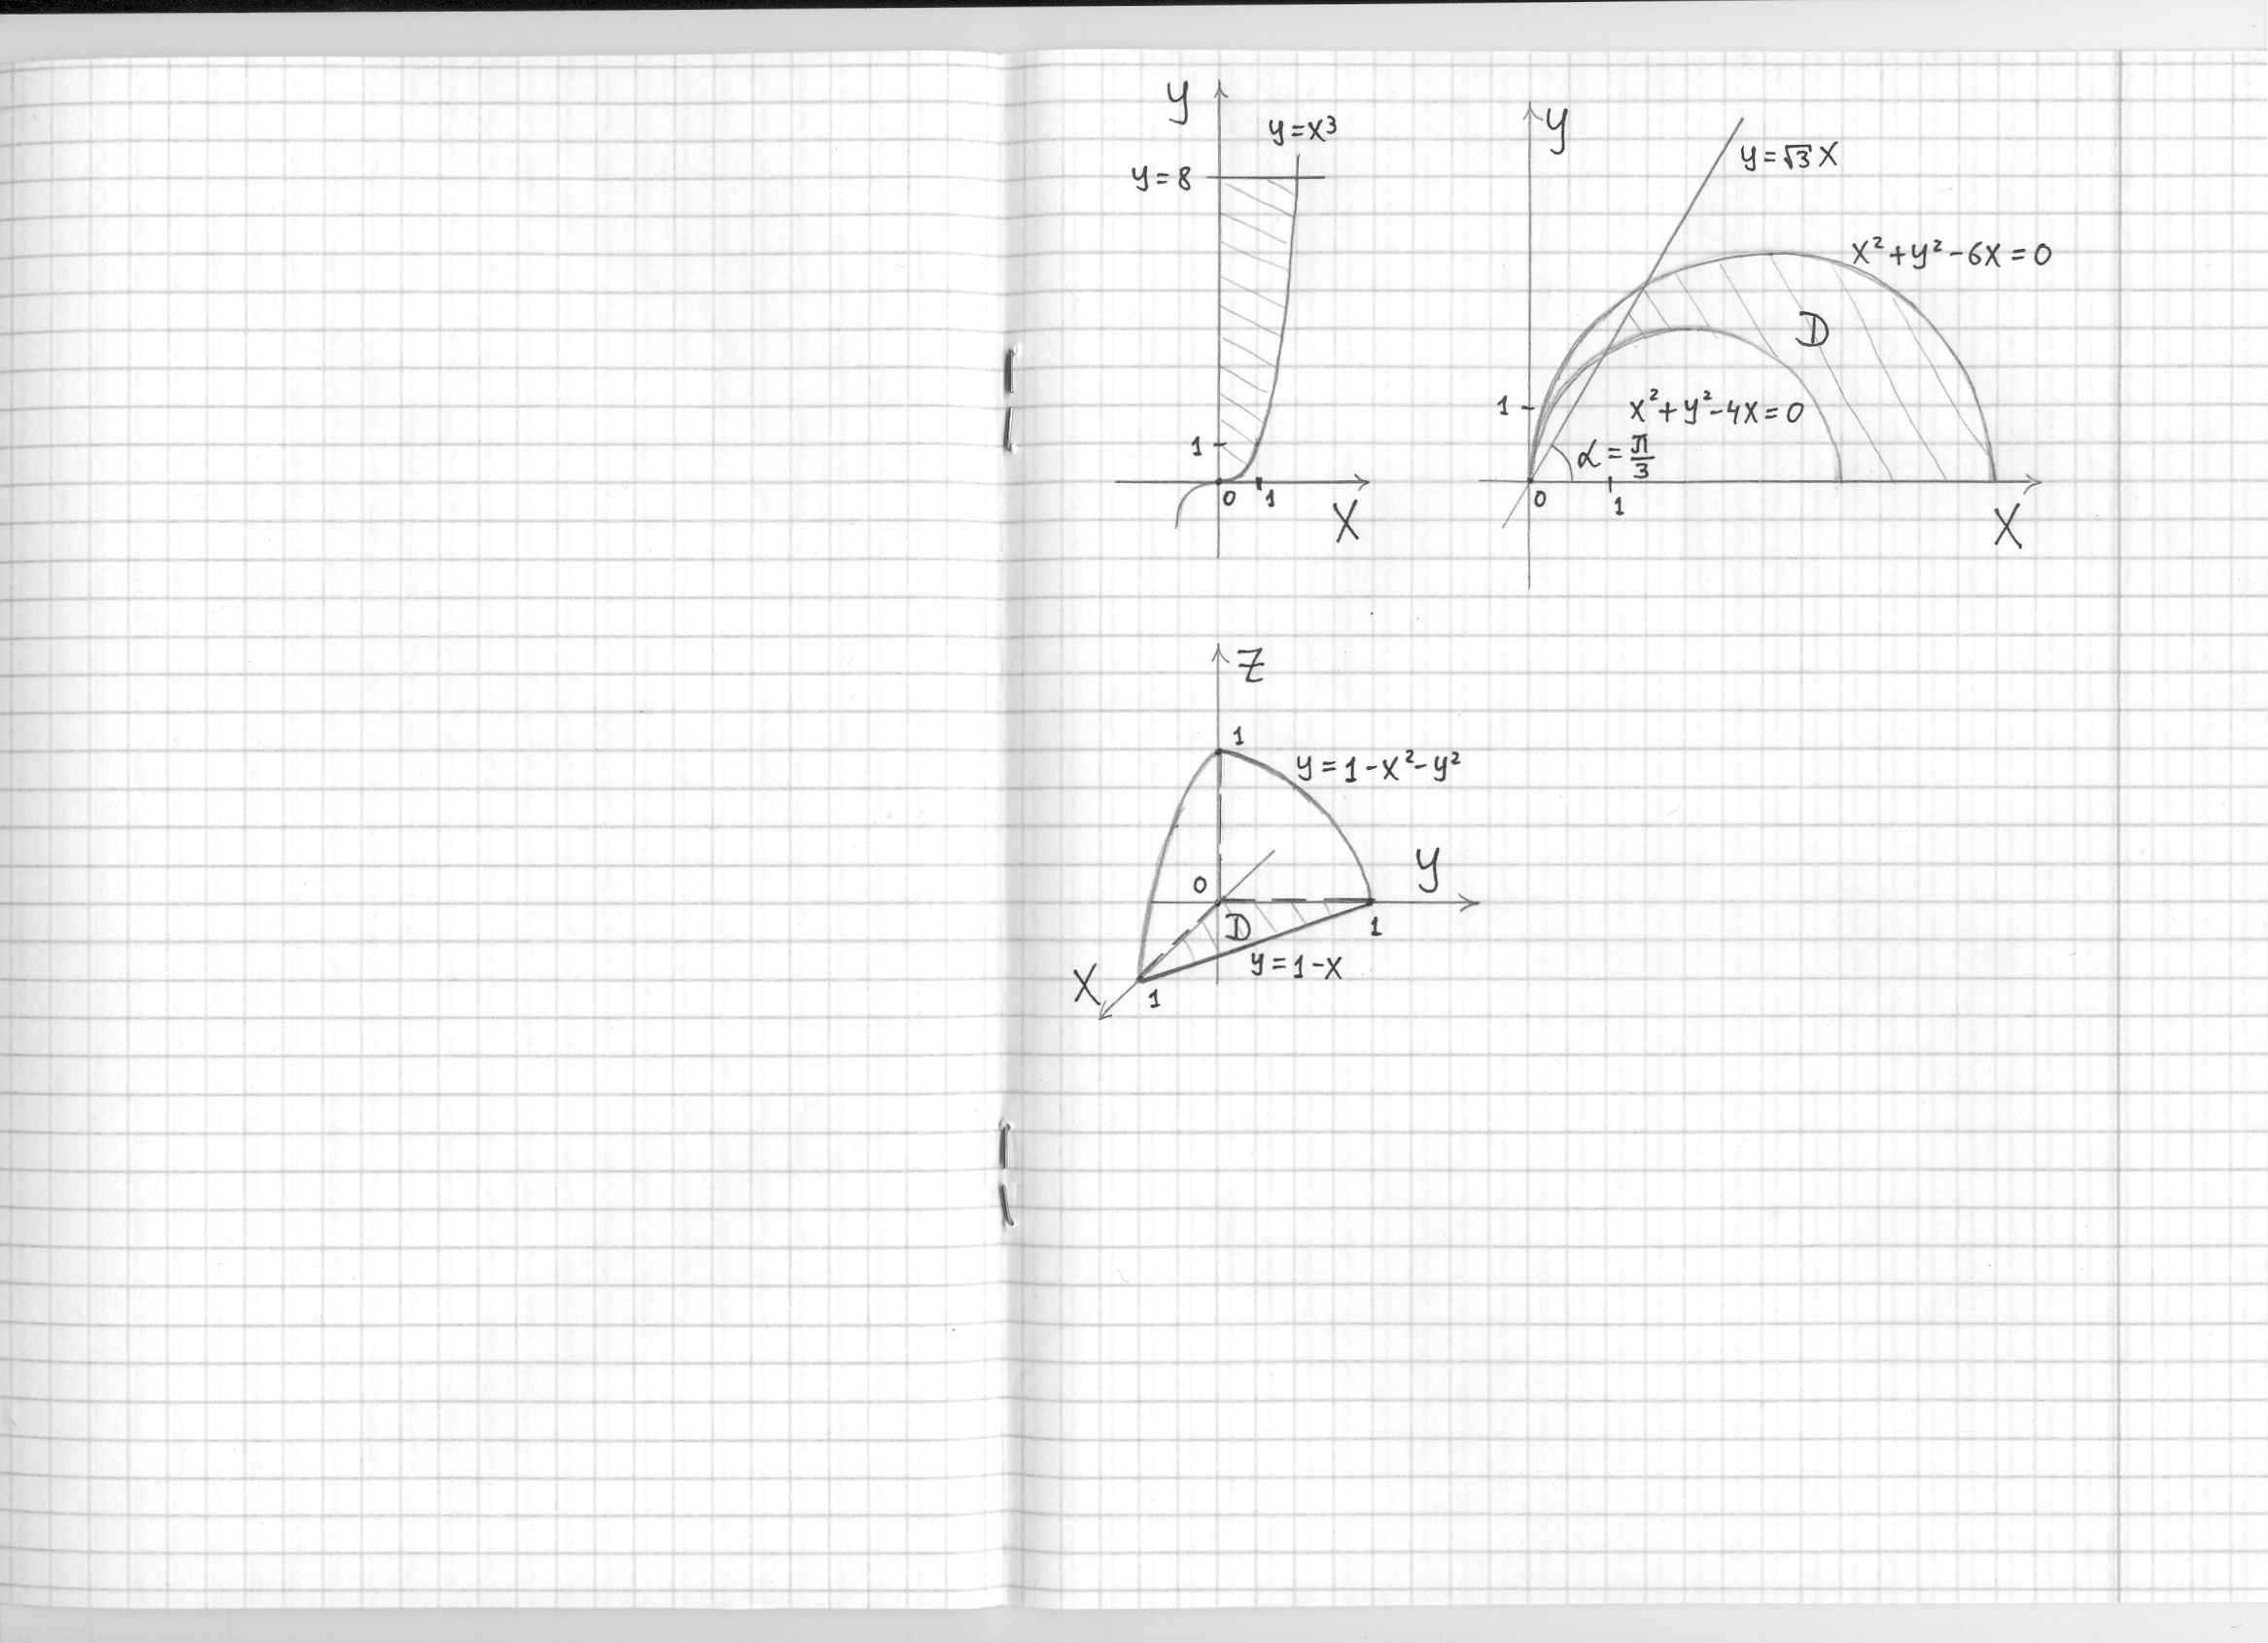 y
y=x³
y=8
1
0 1
X
y
y=√3 x
x²+y²-6x=0
D
1
x²+y²-4x=0
α=π/3
0
1
X
z
1
y=1-x²-y²
0
y
D
1
y=1-x
X
1